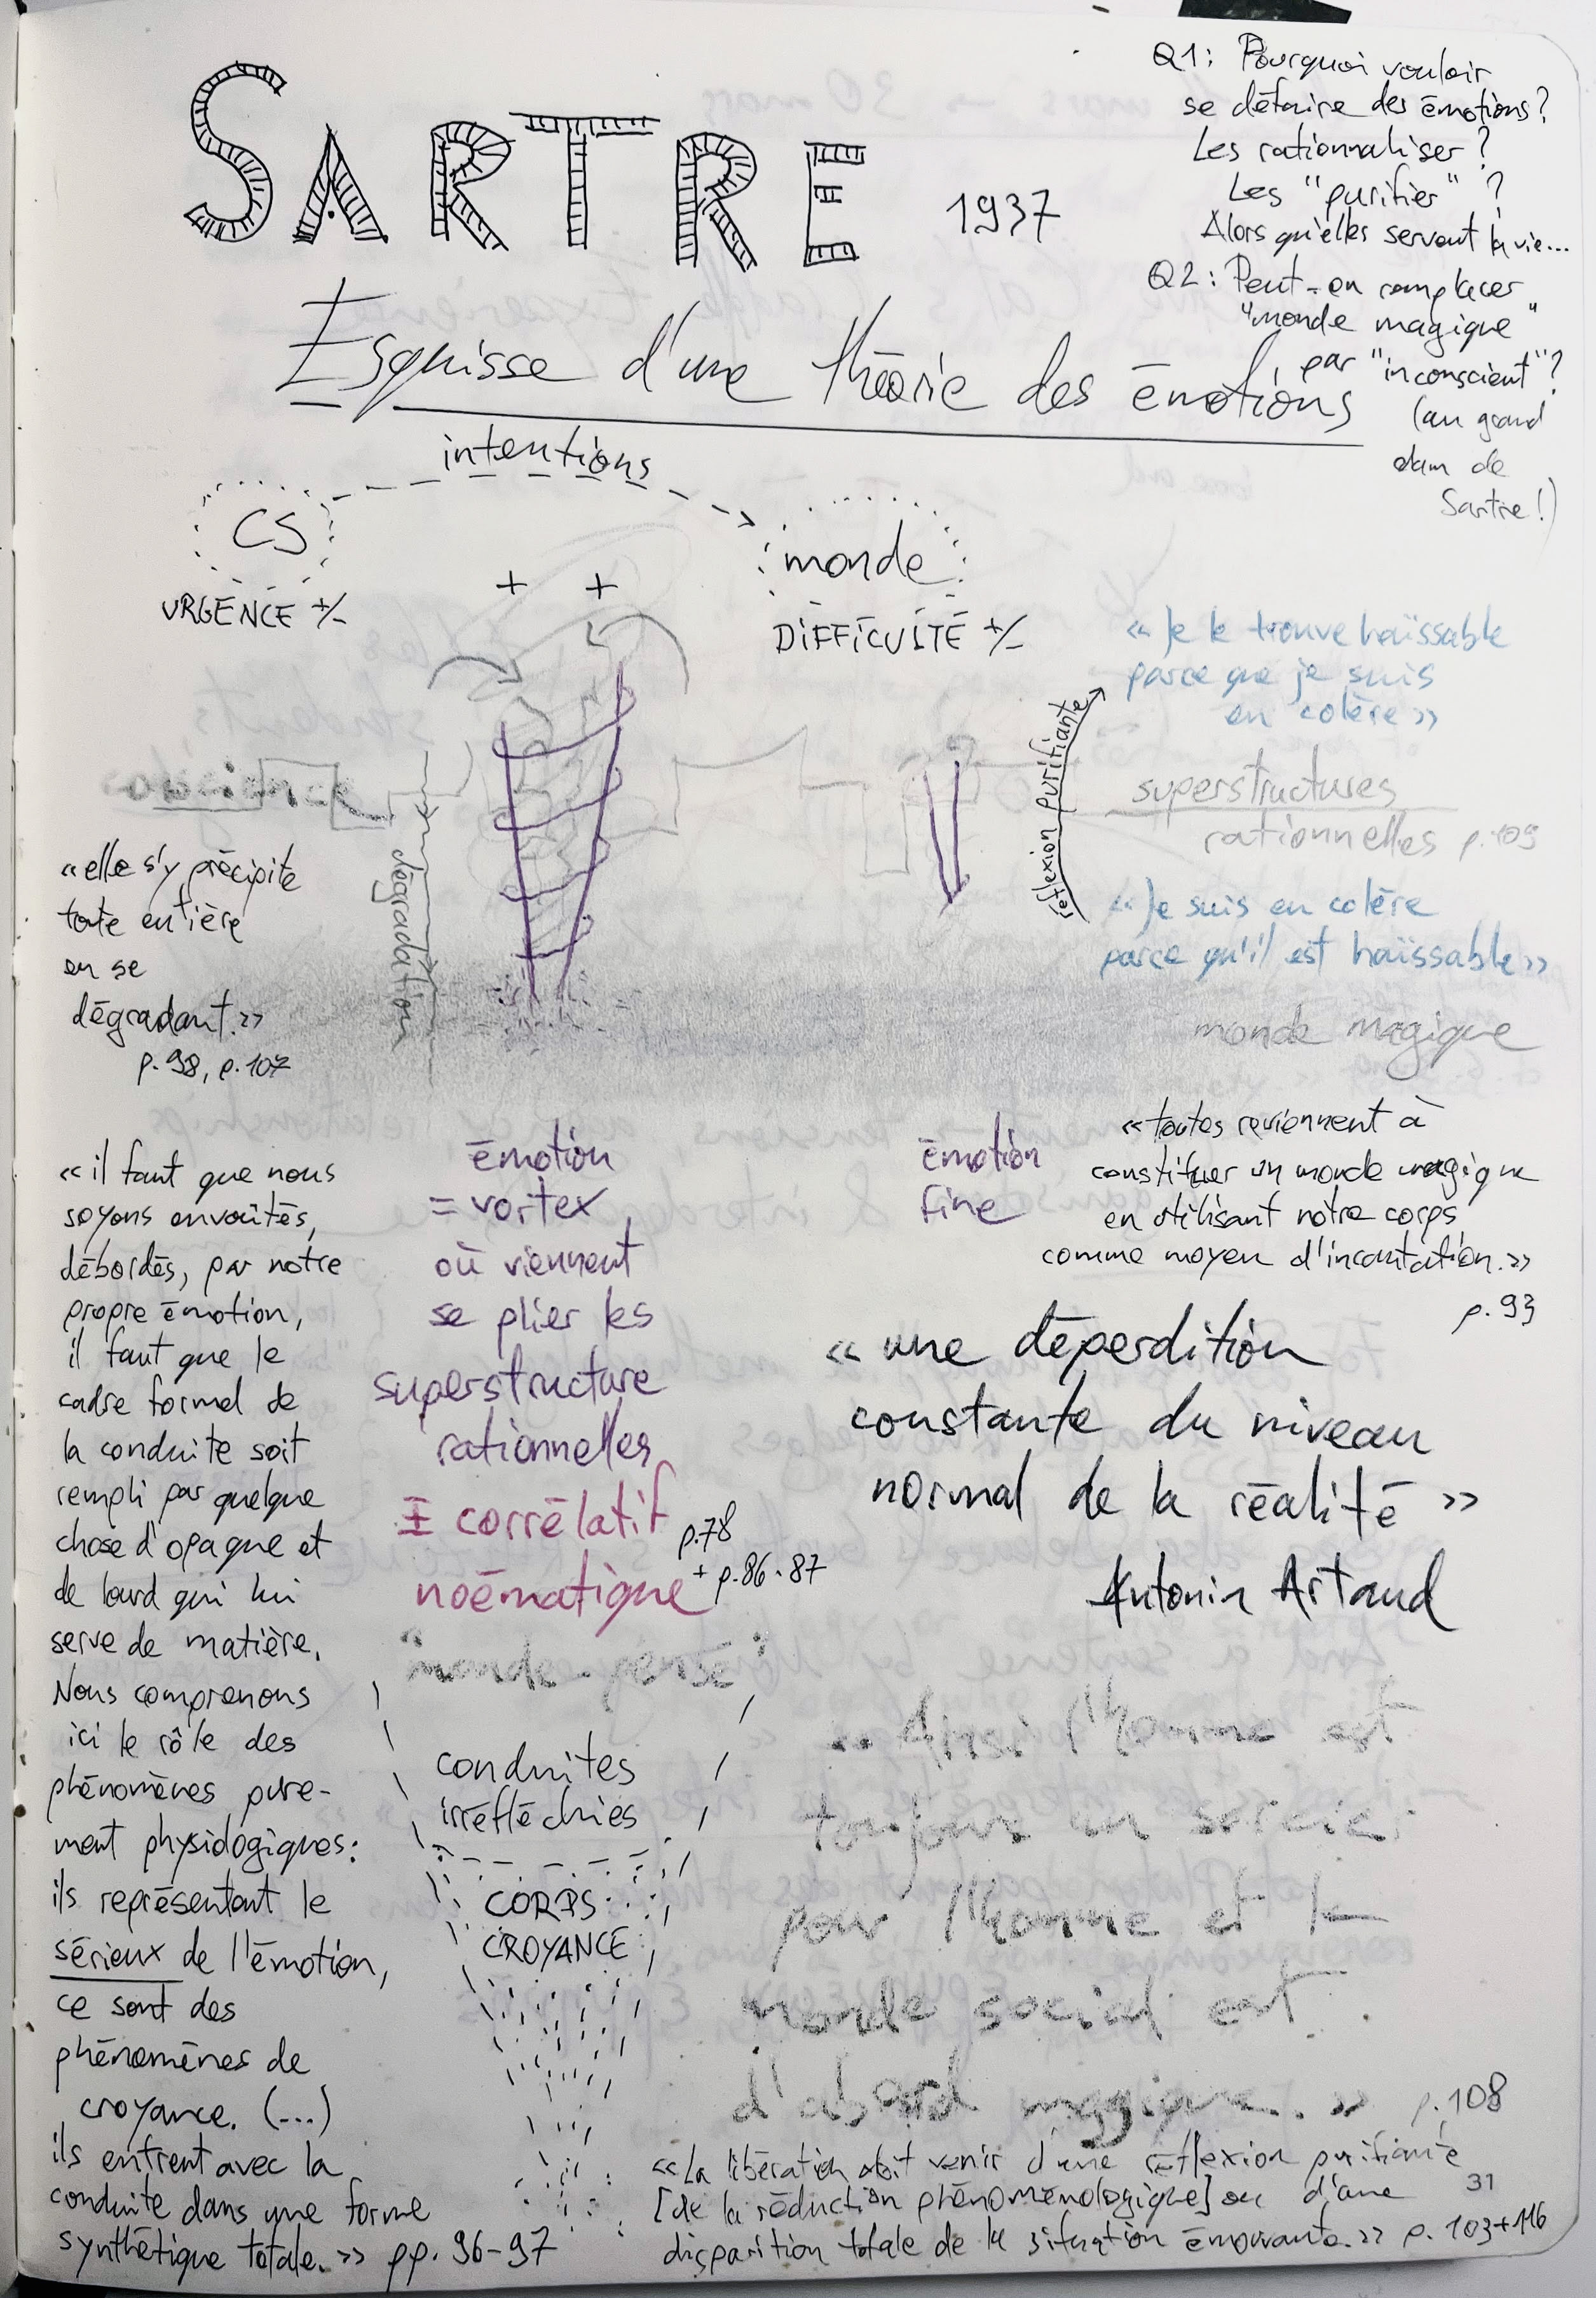 SARTRE 1937
Esquisse d'une théorie des émotions
Q1: Pourquoi vouloir
se défaire des émotions?
Les rationnaliser?
Les "purifier" ?
Alors qu'elles servent la vie...
Q2: Peut-on remplacer
"monde magique"
par "inconscient"?
(au grand
dam de
Sartre!)
intentions
CS
URGENCE +/-
monde
DIFFICULTÉ +/-
+ +
conscience
dégradation
réflexion purifiante
« Je le trouve haïssable
parce que je suis
en colère »
superstructures
rationnelles p.109
« Je suis en colère
parce qu'il est haïssable »
monde magique
« elle s'y précipite
toute entière
en se
dégradant. »
p.98, p.107
« il faut que nous
soyons envoûtés,
débordés, par notre
propre émotion,
il faut que le
cadre formel de
la conduite soit
rempli par quelque
chose d'opaque et
de lourd qui lui
serve de matière.
Nous comprenons
ici le rôle des
phénomènes pure-
ment physiologiques:
ils représentent le
sérieux de l'émotion,
ce sont des
phénomènes de
croyance. (...)
ils entrent avec la
conduite dans une forme
synthétique totale. » pp. 96-97
émotion
= vortex
où viennent
se plier les
superstructure
rationnelles
± corrélatif
noématique
p.78
+ p.86-87
"monde-pensé"
conduites
irréfléchies
CORPS
CROYANCE
émotion
fine
« toutes reviennent à
constituer un monde magique
en utilisant notre corps
comme moyen d'incantation. »
p.93
« une déperdition
constante du niveau
normal de la réalité »
Antonin Artaud
« Ainsi l'homme est
toujours un sorcier
pour l'homme et le
monde social est
d'abord magique. » p.108
« La libération doit venir d'une réflexion purifiante
[de la réduction phénoménologique] ou d'une
disparition totale de la situation émouvante. » p. 103+116
31